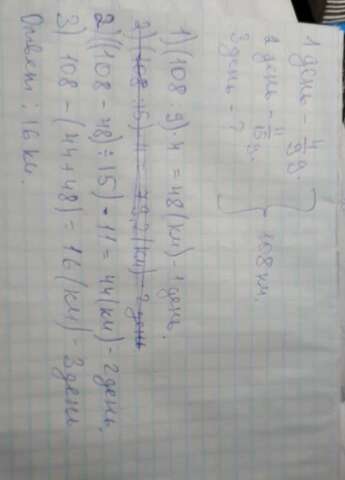 1 день - 4/9 д.
2 день - 11/15 д. } 108 км.
3 день - ?
1) (108 : 9) · 4 = 48 (км) - 1 день.
2) (108 : 15) · 11 = 79,2 (км) - 2 день
2) ((108 - 48) : 15) · 11 = 44 (км) - 2 день.
3) 108 - (44 + 48) = 16 (км) - 3 день
Ответ : 16 км.